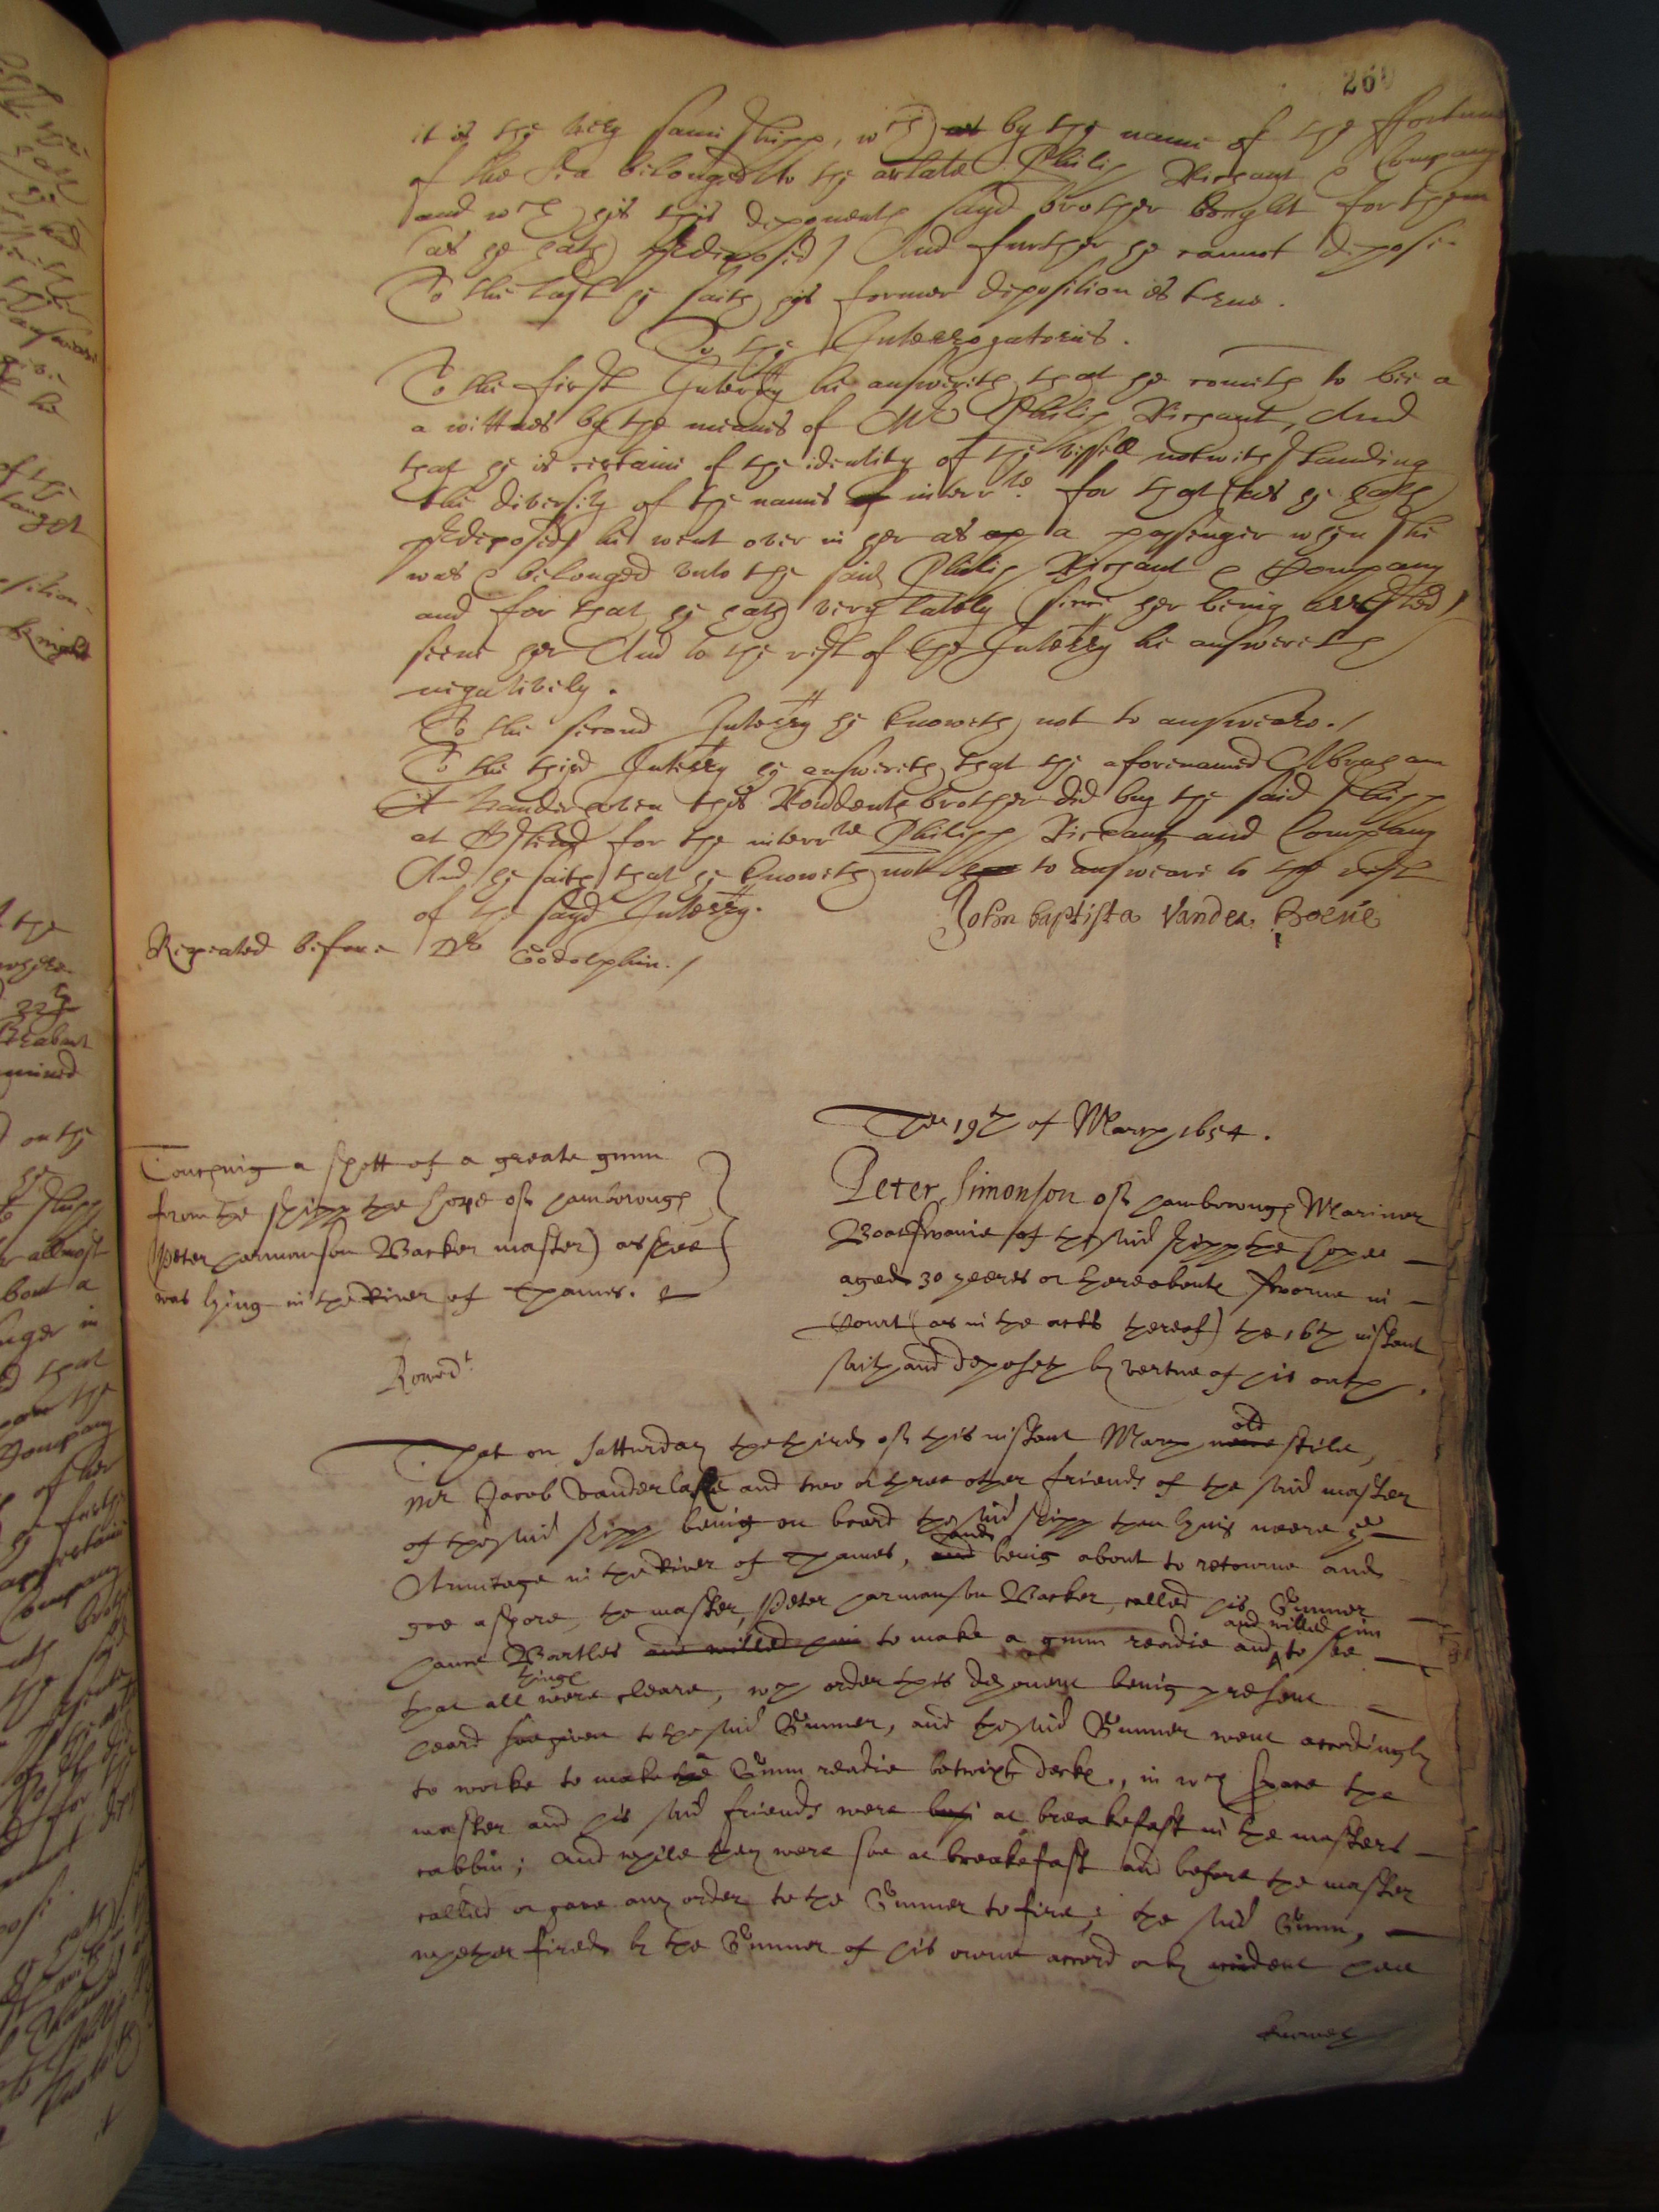 260
it is the very same shipp, wch as by the name of the ffortune
of the Sea belonged to the arlate Philip Dirxant & Company
and wch his this deponents sayd brother bought for them
(as he hath predeposed) And further he cannot depose
To the last he saith his former deposition is true.
To the Interrogatories.
To the first Interry he answereth that he cometh to bee a
a wittnes by the meanes of Mr Philip Dirxant, And
that he is certaine of the identity of the vessell notwithstanding
the diversity of the names of interrte for that (as he hath
predeposed) he went over in her as a passenger when she
was & belonged unto the said Philip Dirxant & Company
and for that he hath very lately (since her being arrested)
seene her And to the rest of the Interry he answereth
negatively.
To the second Interry he knoweth not to answeare./
To the third Interry he answereth that the aforenamed Abraham
Vander this Rondents brother did buy the said shipp
at Ostend for the interrte Philipp Dirxant and Company
And he saith that he knoweth not to answeare to the rest
of the sayd Interry.
John baptista Vander Hoeve
Repeated before Dr Godolphin./
The 19th of March 1654.
Touching a shott of a greate gunn
from the shipp the hope of hamborough
(Peter harmanson Backer master) as shee
was lying in the River of Thames.
Rowed
Peter Simonson of hamborough Mariner
Boatswaine of the said shipp the hope
aged 30 yeeres or thereabouts sworne in
Court (as in the acts thereof) the 16th instant
saith and deposeth by vertue of his oath.
That on satturday the third of this instant March newe old stile,
mr Jacob Vanderlasse and two or three other friends of the said master
of the said shipp being on board the said shipp then lying neere ye
Armitage in the River of Thames, and and being about to retourne and
goe ashore, the master, Peter harmanson Backer, called his Gunner
hanne Bartles and willed him to make a gunn readie and and willed him to see
that all things were cleare, wch order this deponent being present
heard soe given to the said Gunner, and the said Gunner went accordingly
to worke to make the a Gunn readie betwixt decks, in wch space the
master and his said friends were at breakefast in the masters
cabbin; and while they were soe at breakefast and before the master
called or gave any order to the Gunner to fire, the said Gunn,
whether fired by the Gunner of his owne accord or by accident hee
knoweth